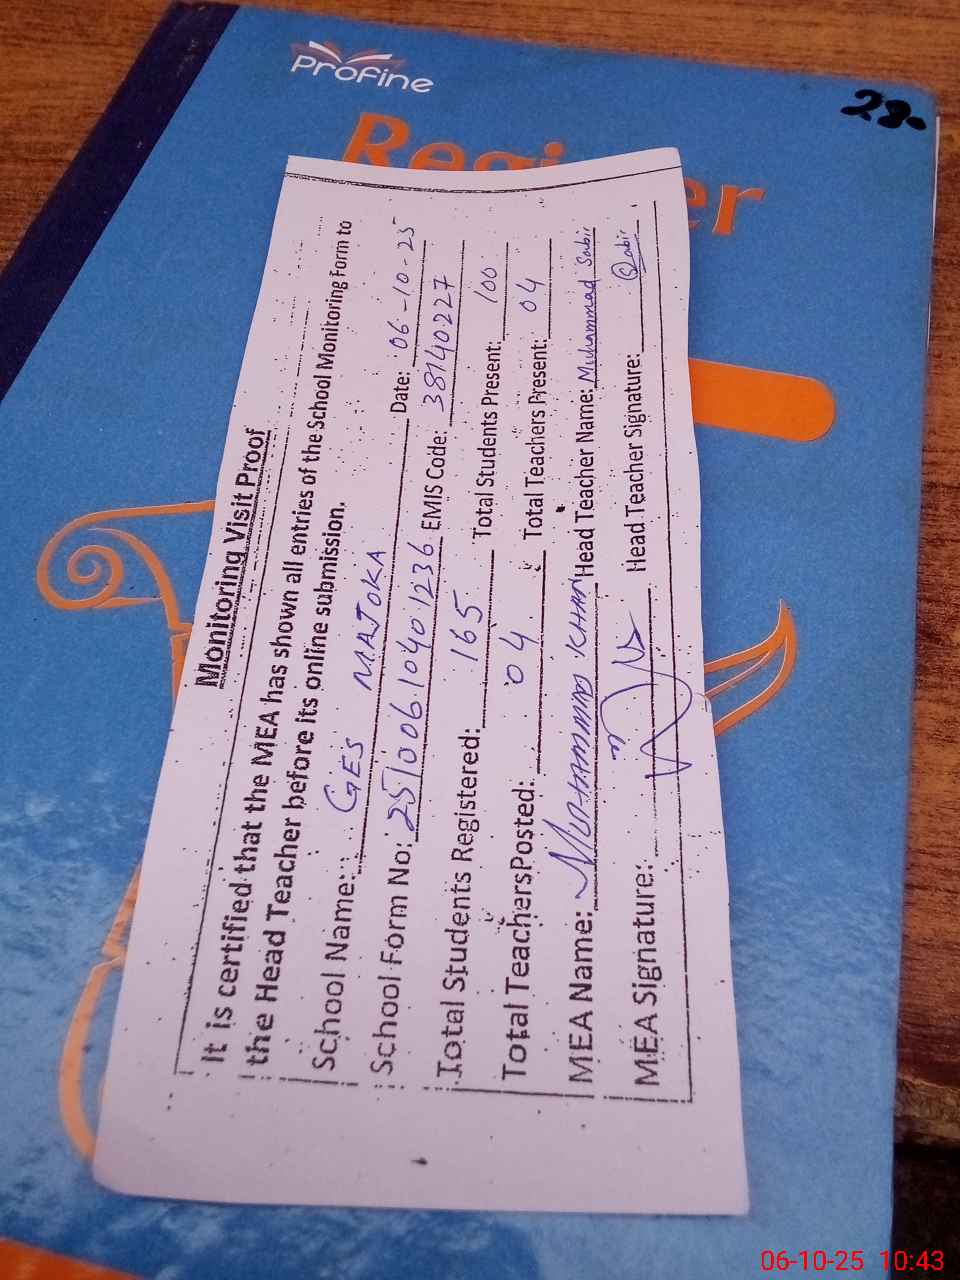 Profine
Register
28.
Monitoring Visit Proof
It is certified that the MEA has shown all entries of the School Monitoring Form to
the Head Teacher before its online submission.
School Name: GES MAJOKA Date: 06-10-25
School Form No: 251006.10401236 EMIS Code: 38140227
Total Students Registered: 165 Total Students Present: 100
Total Teachers Posted: 04 Total Teachers Present: 04
MEA Name: MUHAMMAD KHAN Head Teacher Name: Muhammad Sabir
MEA Signature: Head Teacher Signature: Sabir
06-10-25 10:43